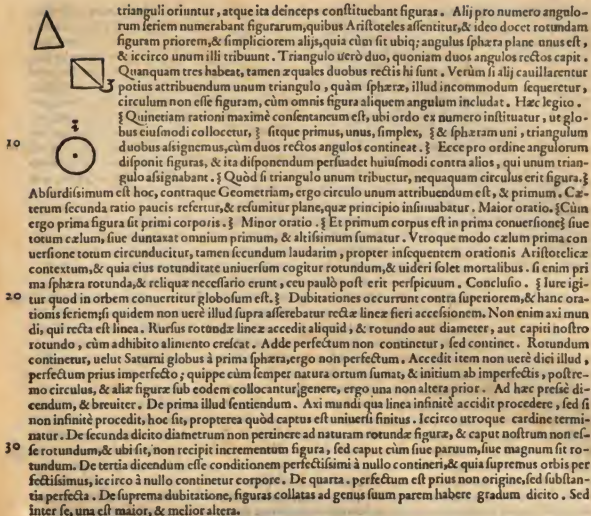 trianguli oriuntur, atque ita deinceps constituebant figuras. Alij pro numero angulo-
rum seriem numerabant figurarum, quibus Aristoteles assentitur, & ideo docet rotundam
figuram priorem, & simpliciorem alijs, quia cùm sit ubiq; angulus sphæra plane unus est,
& iccirco unum illi tribuunt. Triangulo uerò duo, quoniam duos angulos rectos capit.
Quanquam tres habeat, tamen æquales duobus rectis hi sunt. Verùm si alij cauillarentur
3
potius attribuendum unum triangulo, quàm sphæræ, illud incommodum sequeretur,
circulum non esse figuram, cùm omnis figura aliquem angulum includat. Hæc legito.
§ Quinetiam rationi maximè consentaneum est, ubi ordo ex numero instituatur, ut glo-
bus eiusmodi collocetur, § sitque primus, unus, simplex, § & sphæram uni, triangulum
10 duobus assignemus, cùm duos rectos angulos contineat. § Ecce pro ordine angulorum
disponit figuras, & ita disponendum persuadet huiusmodi contra alios, qui unum trian-
gulo assignabant. § Quòd si triangulo unum tribuetur, nequaquam circulus erit figura. §
Absurdissimum est hoc, contraque Geometriam, ergo circulo unum attribuendum est, & primum. Cæ-
terum secunda ratio paucis refertur, & resumitur plane, quæ principio insinuabatur. Maior oratio. § Cùm
ergo prima figura sit primi corporis. § Minor oratio. § Et primum corpus est in prima conuersione § siue
totum cælum, siue duntaxat omnium primum, & altissimum sumatur. Vtroque modo cælum prima con
uersione totum circunducitur, tamen secundum laudarim, propter insequentem orationis Aristotelicæ
contextum, & quia eius rotunditate uniuersum cogitur rotundum, & uideri solet mortalibus. si enim pri
ma sphæra rotunda, & reliquæ necessario erunt, ceu paulò post erit perspicuum. Conclusio. § Iure igi-
20 tur quod in orbem conuertitur globosum est. § Dubitationes occurrunt contra superiorem, & hanc ora-
tionis seriem; si quidem non uere illud supra asserebatur rectæ lineæ fieri accessionem. Non enim axi mun
di, qui recta est linea. Rursus rotundæ lineæ accedit aliquid, & rotundo aut diameter, aut capiti nostro
rotundo, cùm adhibito alimento crescat. Adde perfectum non continetur, sed continet. Rotundum
continetur, uelut Saturni globus à prima sphæra, ergo non perfectum. Accedit item non uerè dici illud,
perfectum prius imperfecto; quippe cùm semper natura ortum sumat, & initium ab imperfectis, postre-
mo circulus, & aliæ figuræ sub eodem collocantur genere, ergo una non altera prior. Ad hæc pressè di-
cendum, & breuiter. De prima illud sentiendum. Axi mundi qua linea infinitè accidit procedere, sed si
non infinitè procedit, hoc sit, propterea quòd captus est uniuersi finitus. Iccirco utroque cardine termi-
natur. De secunda dicito diametrum non pertinere ad naturam rotundæ figuræ, & caput nostrum non es-
30 se rotundum, & ubi sit, non recipit incrementum figura, sed caput cùm siue paruum, siue magnum sit ro-
tundum. De tertia dicendum esse conditionem perfectissimi à nullo contineri, & quia supremus orbis per
fectissimus, iccirco à nullo continetur corpore. De quarta. perfectum est prius non origine, sed substan-
tia perfecta. De suprema dubitatione, figuras collatas ad genus suum parem habere gradum dicito. Sed
inter se, una est maior, & melior altera.